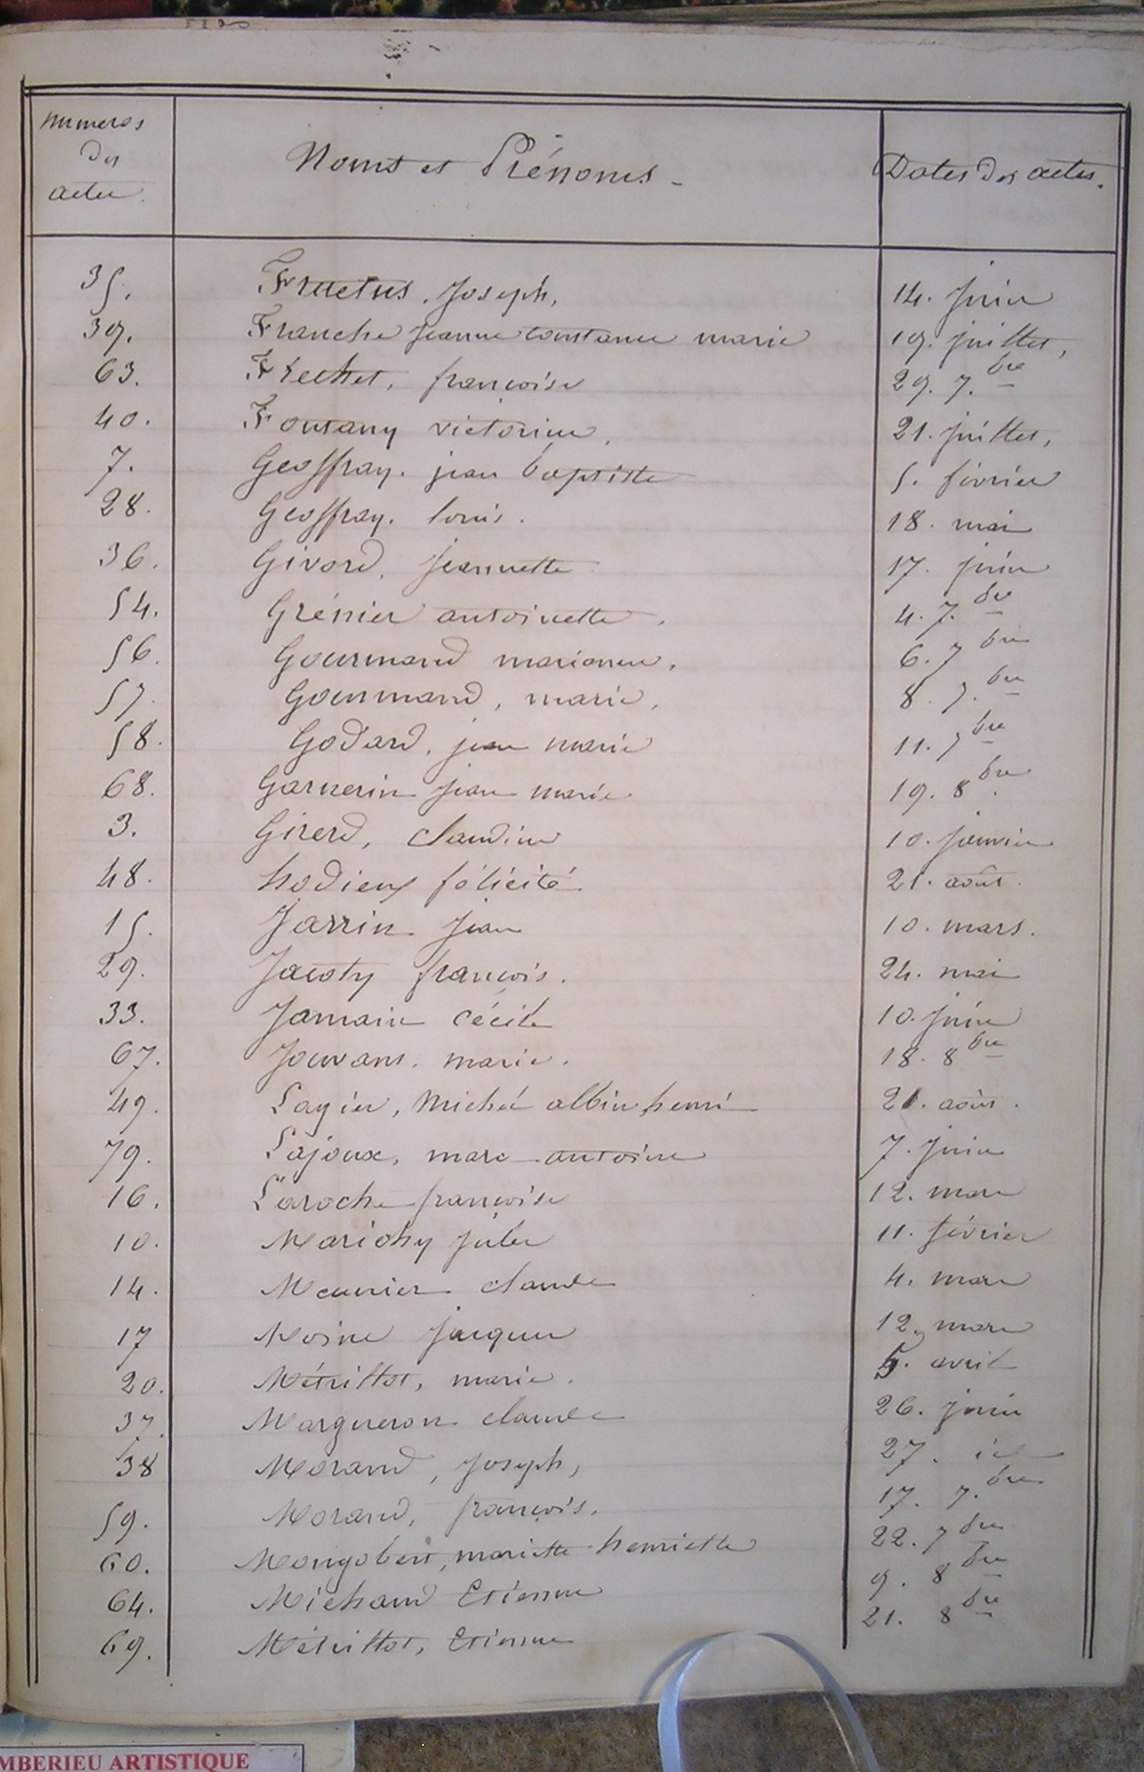 numeros
des
actes.
Noms et Prénoms -
Dates des actes.
35. Fructus, Joseph, 14. juin
39. Franche Jeanne constance marie 19. juillet,
63. Fréchet, françoise 29. 7.bre
40. Fontany victorine, 21. juillet,
7. Geoffray. jean baptiste 5. février
28. Geoffray. louis. 18. mai
36. Givord, Jeannette 17. juin
54. Grénier antoinette, 4. 7.bre
56. Gourmand marianne, 6. 7bre
57. Gourmand, marie, 8. 7.bre
58. Godard, jean marie 11. 7bre
68. Garnerin Jean marie 19. 8bre
3. Girerd, claudine 10. janvier
48. hodieux félicité 21. août.
15. Jarrin Jean 10. mars.
29. Jacoty françois. 24. mai
33. Jamain Cécile 10. juin
67. Jouvans. marie. 18. 8bre
49. Layier, Michel albin henri 21. août.
79. Lajoux, marc antoine 7. juin
16. Laroche françoise 12. mars
10. Marichy jules 11. février
14. Meunier claude 4. mars
17 Moine jacques 12. mars
20. Métrillot, marie. 5. avril
37. Margueron claude 26. juin
38 Morand, Joseph, 27. id
59. Morand, françois. 17. 7.bre
60. Mongobert, mariette henriette 22. 7bre
64. Michaud Etienne 9. 8bre
69. Métrillot, Etienne 21. 8bre
MBERIEU ARTISTIQUE